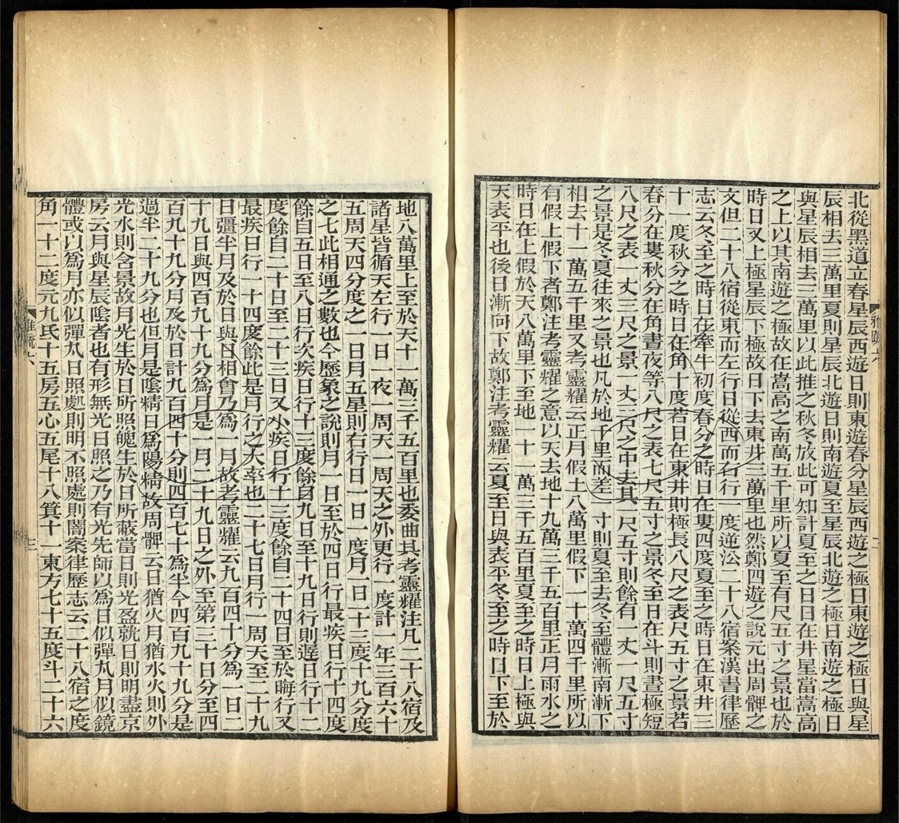 北從黑道立春星辰西遊日則東遊春分星辰西遊之極日東遊之極日與星
辰相去三萬里夏則星辰北遊日則南遊夏至星辰北遊之極日南遊之極日
與星辰相去三萬里以此推之秋冬放此可知計夏至之日日在井星當嵩高
之上以其南遊之極故在嵩高之南萬五千里所以夏至有尺五寸之景也於
時日又上極星辰下極故日下去東井三萬里也然鄭四遊之說元出周髀之
文但二十八宿從東而左行日從西而右行一度逆㳂二十八宿案漢書律歷
志云冬至之時日在牽牛初度春分之時日在婁四度夏至之時日在東井三
十一度秋分之時日在角十度若日在東井則極長八尺之表尺五寸之景若
春分在婁秋分在角晝夜等八尺之表七尺五寸之景冬至日在斗則晝極短
八尺之表一丈三尺之景一丈三尺之中去其一尺五寸則餘有一丈一尺五寸
之景是冬夏往來之景也凡於地千里而差一寸則夏至去冬至體漸南漸下
相去十一萬五千里又考靈耀云正月假上八萬里假下一十萬四千里所以
有假上假下者鄭注考靈耀之意以天去地十九萬三千五百里正月雨水之
時日在上假於天八萬里下至地一十一萬三千五百里夏至之時日上極與
天表平也後日漸向下故鄭注考靈耀云夏至日與表平冬至之時日下至於
雅疏六
地八萬里上至於天十一萬三千五百里也委曲具考靈耀注凡二十八宿及
諸星皆循天左行一日一夜一周天一周天之外更行一度計一年三百六十
五周天四分度之一日月五星則右行日一日一度月一日十三度十九分度
之七此相通之數也今歷象之說則月一日至於四日行最疾日行十四度
餘自五日至八日行次疾日行十三度餘自九日至十九日行則遲日行十二
度餘自二十日至二十三日又小疾日行十三度餘自二十四日至於晦行又
最疾日行一十四度餘此是月行之大率也二十七日月行一周天至二十九
日彊半月及於日與日相會乃爲一月故考靈耀云九百四十分爲一日二
十九日與四百九十九分爲月是一月二十九日之外至第三十日分至四
百九十九分月及於日計九百四十分則四百七十爲半今四百九十九分是
過半二十九分也但月是陰精日爲陽精故周髀云日猶火月猶水火則外
光水則含景故月光生於日所照魄生於日所蔽當日則光盈就日則明盡京
房云月與星辰陰者也有形無光日照之乃有光先師以爲日似彈丸月似鏡
體或以爲月亦似彈丸日照處則明不照處則闇案律歷志云二十八宿之度
角一十二度亢九氐十五房五心五尾十八箕十一東方七十五度斗二十六
雅疏六
三